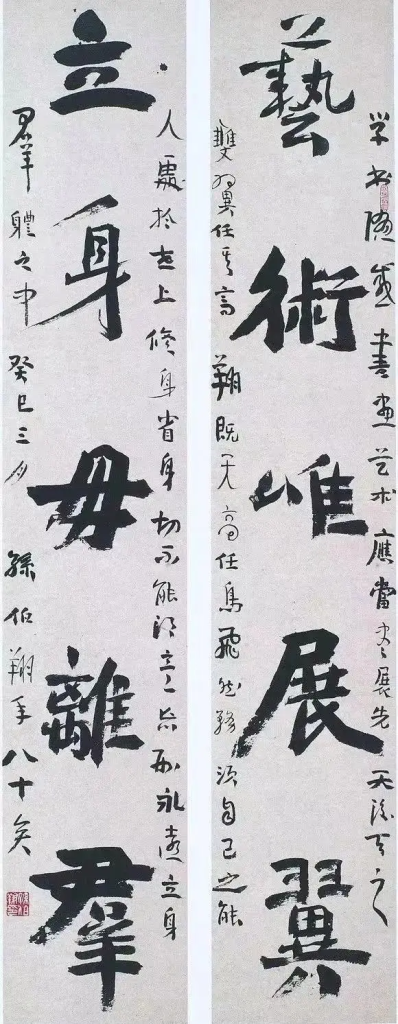 藝術唯展翼
学书随感書画艺术應當展先天后天之
雙翼任其高翔既天高任鳥飛然務須自己之能
立身毋離羣
人處於世上修身省身切不能得意忘形永遠立身
羣體之中癸巳三月孫伯翔年八十矣